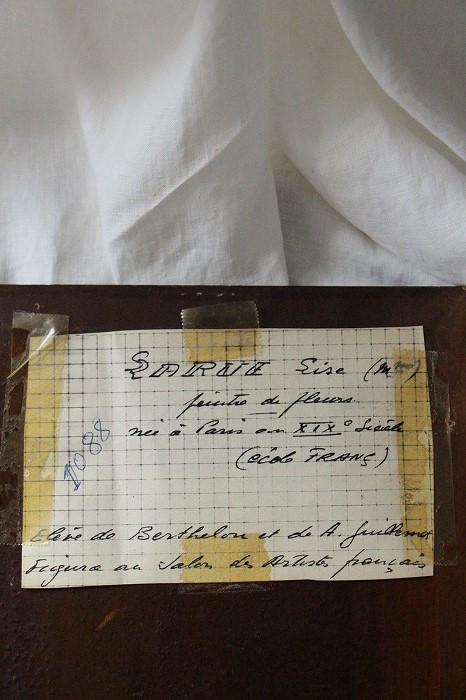 SARNE Lise (Mme)
peintre de fleurs
née à Paris au XIX° Siècle
(école FRANÇ)
1088
Elève de Berthelon et de A. Guillemet
Figura au Salon des Artistes français